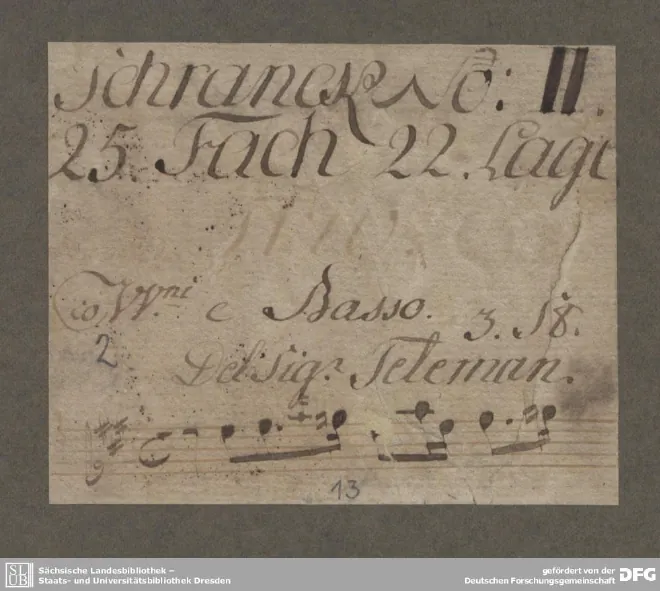 Schranck No: II.
25. Fach 22. Lage
co VV.ni e Basso. 3. St.
2
Del Sigr. Teleman.
13
SLUB
Sächsische Landesbibliothek –
Staats- und Universitätsbibliothek Dresden
gefördert von der
Deutschen Forschungsgemeinschaft
DFG